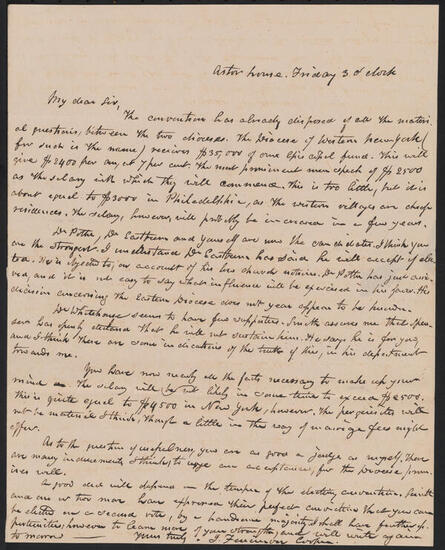 Astor House. Friday 3 o'clock
My dear Sir,
The convention has already disposed of all the materi
al questions, between the two dioceses. The Diocese of Western New York (
for such is the name) receives $35,000 of our Episcopal fund. This will
give $2400 per an, at 7 per cent. The most prominent men speak of $2500
as the salary with which they will commence. This is too little, but it is
about equal to $3000 in Philadelphia, as the western villages are cheap
residences. The salary, however, will probably be increased in a few years.
Dr Potter, Dr Eastburn and yourself are now the candidates. I think you
are the strongest. I understand Dr Eastburn has said he will accept if elec
ted. He is objected to, on account of his low church notions. Dr Potter has just arri
ved, and it is not easy to say what influence will be exercised in his favor. His
decision concerning the Eastern Diocese does not yet appear to be known.
Dr Whitehouse seems to have few supporters. Smith assures me that Spen
cer has openly declared that he will not sustain him. He says he is for you,
and I think there are some indications of the truth of this, in his deportment
towards me.
You have now nearly all the facts necessary to make up your
mind. The salary will not likely in some time to exceed $2500.
This is quite equal to $4500 in New York, however. The perquisites will
not be material I think, though a little in the way of marriage fees might
offer.
As to the question of usefulness, you are as good a judge as myself. There
are many inducements I think, to urge an acceptance, for the Diocese prom
ises well.
A good deal will depend on the temper of the electing convention. Smith
and one or two more have expressed their perfect conviction that you can
be elected on a second vote, by a handsome majority. I shall have further op
portunities, however to learn more of your strength, and will write again
to morrow
Yours truly J. Fenimore Cooper